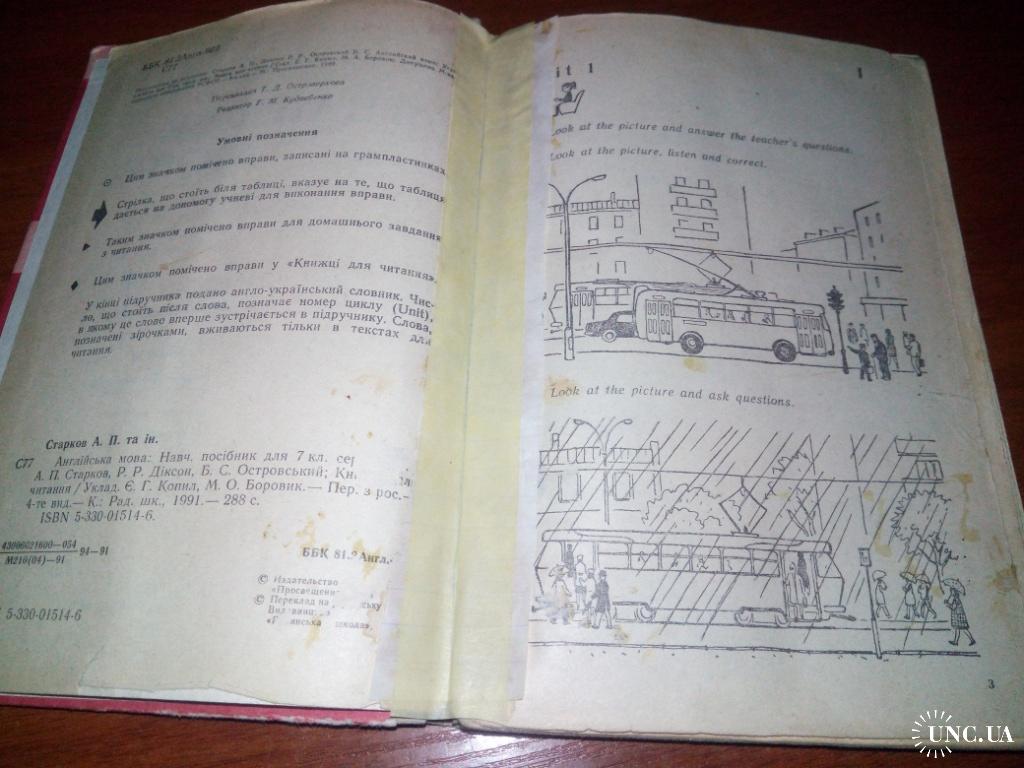 ББК 81.2Англ-922
С77
Переклала Т. Д. Остромирова
Редактор Г. М. Кудрябенко
Умовні позначення
Цим значком помічено вправи, записані на грампластинках
Стрілка, що стоїть біля таблиці, вказує на те, що таблиця
дається на допомогу учневі для виконання вправи.
Таким значком помічено вправи для домашнього завдання
з читання.
Цим значком помічено вправи у «Книжці для читання».
У кінці підручника подано англо-український словник. Чис-
ло, що стоїть після слова, позначає номер циклу (Unit),
в якому це слово вперше зустрічається в підручнику. Слова,
позначені зірочками, вживаються тільки в текстах для
читання.
Старков А. П. та ін.
С77 Англійська мова: Навч. посібник для 7 кл. сер
А. П. Старков, Р. Р. Діксон, Б. С. Островський; Кн
читання / Уклад. Є. Г. Копил, М. О. Боровик.— Пер. з рос.—
4-те вид.— К.: Рад. шк., 1991.— 288 с.
ISBN 5-330-01514-6.
4306021600—054
М210(04)—91
94—91
ББК 81.2Англ.
© Издательство
«Просвещени
© Переклад на ську
Вид вниц
«Р янська кола»,
5-330-01514-6
it 1
1
ook at the picture and answer the teacher's questions.
Look at the picture, listen and correct.
Look at the picture and ask questions.
3
UNC.UA